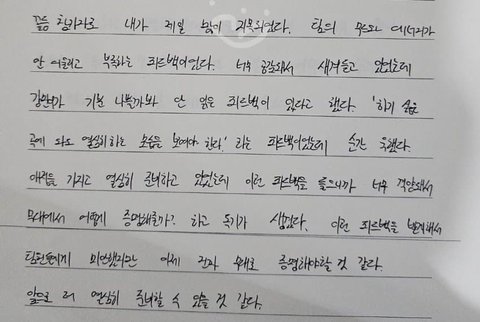 꼴등 참가자로 내가 제일 많이 지목되었다. 팀의 무드와 에너지가
안 어울리고 부족하는 피드백이었다. 너무 공감돼서 새겨듣고 있었는데
기분 나쁠까봐 안 읽은 피드백이 있다고 했다. '하기 싫은
곡에 와도 열심히하는 모습을 보여야 한다' 라는 피드백이었는데 순간 욱했다.
애정을 가지고 열심히 준비하고 있었는데 이런 피드백을 들으니까 너무 억양돼서
무대에서 어떻게 증명해줄까? 하고 독기가 생겼다. 이런 피드백을 받게해서
팀원들에게 미안했지만 이제 진짜 무대로 증명해야할 것 같다.
앞으로 더 열심히 준비할 수 있을 것 같다.